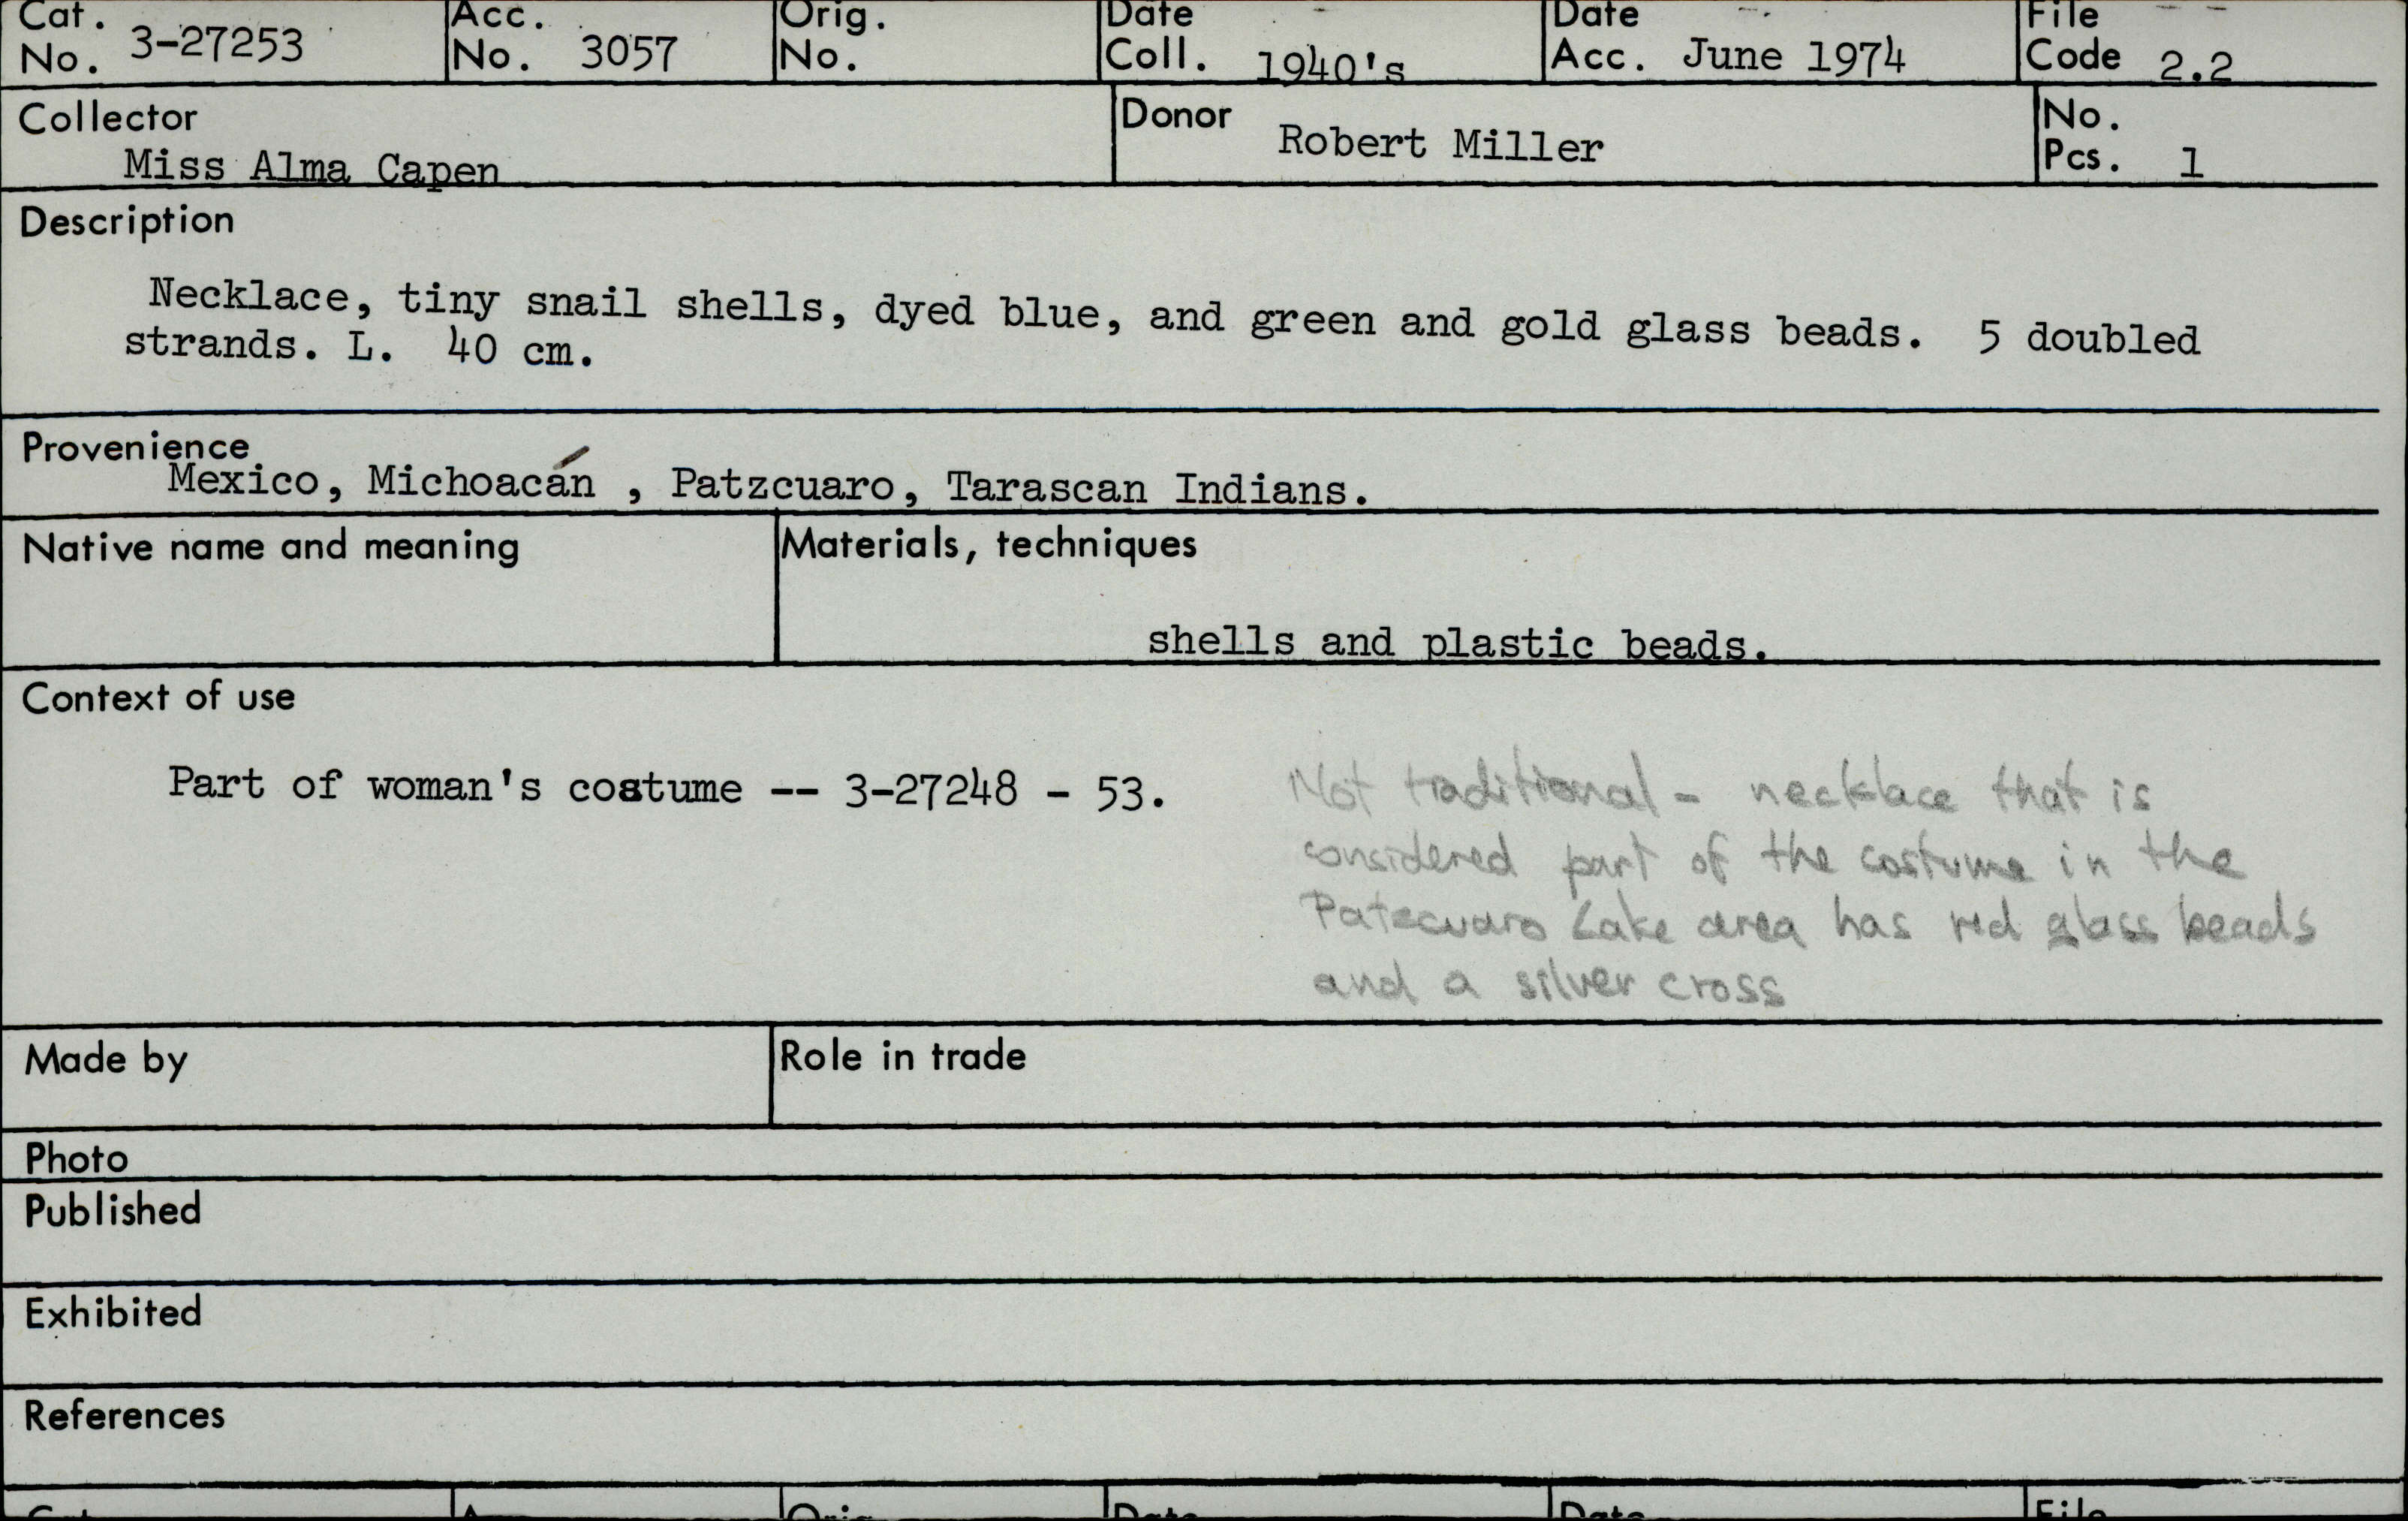 Cat. No. 3-27253 Acc. No. 3057 Orig. No. Date Coll. 1940's Date Acc. June 1974 File Code 2.2
Collector Miss Alma Capen Donor Robert Miller No. Pcs. 1
Description
Necklace, tiny snail shells, dyed blue, and green and gold glass beads. 5 doubled
strands. L. 40 cm.
Provenience
Mexico, Michoacán , Patzcuaro, Tarascan Indians.
Native name and meaning
Materials, techniques
shells and plastic beads.
Context of use
Part of woman's costume -- 3-27248 - 53.
Not traditional - necklace that is
considered part of the costume in the
Patzcuaro Lake area has red glass beads
and a silver cross
Made by
Role in trade
Photo
Published
Exhibited
References